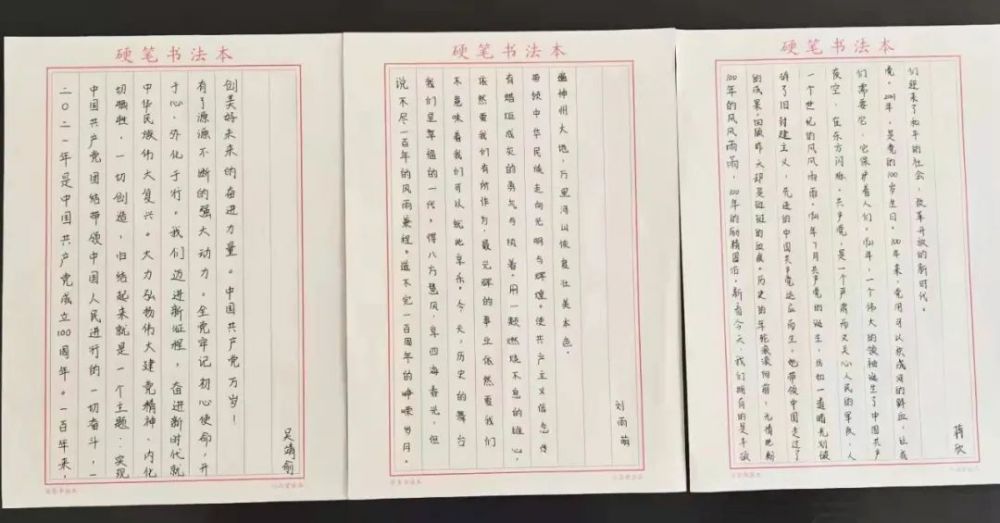 硬笔书法本
二〇二一年是中国共产党成立100周年。一百年来,
中国共产党团结带领中国人民进行的一切奋斗,一
切牺牲,一切创造,归结起来就是一个主题:实现
中华民族伟大复兴。大力弘扬伟大建党精神,内化
于心,外化于行。我们迈进新征程,奋进新时代就
有了源源不断的强大动力。全党牢记初心使命,开
创美好未来的奋进力量。中国共产党万岁!
吴靖俞
硬笔书法本
说不尽一百年的风雨兼程。道不完一百周年的峥嵘岁月。
我们是幸福的一代,得八方惠风,享四海春光,但
不意味着我们可以就地享乐。今天,历史的舞台
依然要我们有所作为,最光辉的事业依然要我们
有蜡炬成灰的勇气与执着。用一颗燃烧不息的雄心,
带领中华民族走向光明与辉煌。使共产主义信念传
遍神州大地,万里河山恢复壮美本色。
刘雨萌
硬笔书法本
100年的风风雨雨,100年的励精图治。看今天,我们拥有的是丰硕
的成果,回顾昨天却是斑斑的血痕。历史的年轮滚滚向前,无情地粉
碎了旧封建主义,先进的中国共产党应运而生。他带领中国走过了
一个世纪的风风雨雨。1921年7月共产党的诞生,恰如一道曙光划破
夜空,在东方闪烁。共产党,是一个严肃而又关心人民的军队,人
们需要它,它保护着人们。1921年,一个伟大的领袖诞生了中国共产
党。2021年,是党的100岁生日。100年来,党用可以积成河的鲜血,让我
们迎来了和平的社会,改革开放的新时代。
蒋欣